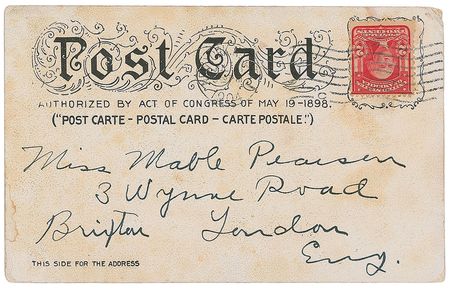 Post Card
AUTHORIZED BY ACT OF CONGRESS OF MAY 19-1898.
("POST CARTE - POSTAL CARD - CARTE POSTALE")
Miss Mable Pearson
3 Wynne Road
Brixton London
Eng.
THIS SIDE FOR THE ADDRESS